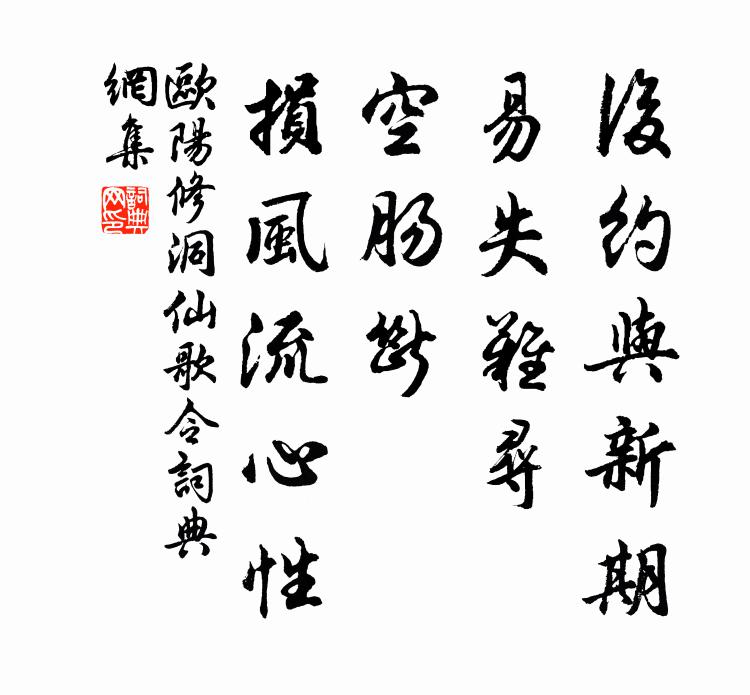 後約與新期
易失難尋
空腸斷
損風流心性
歐陽修洞仙歌令詞典
網集
詞典
网印